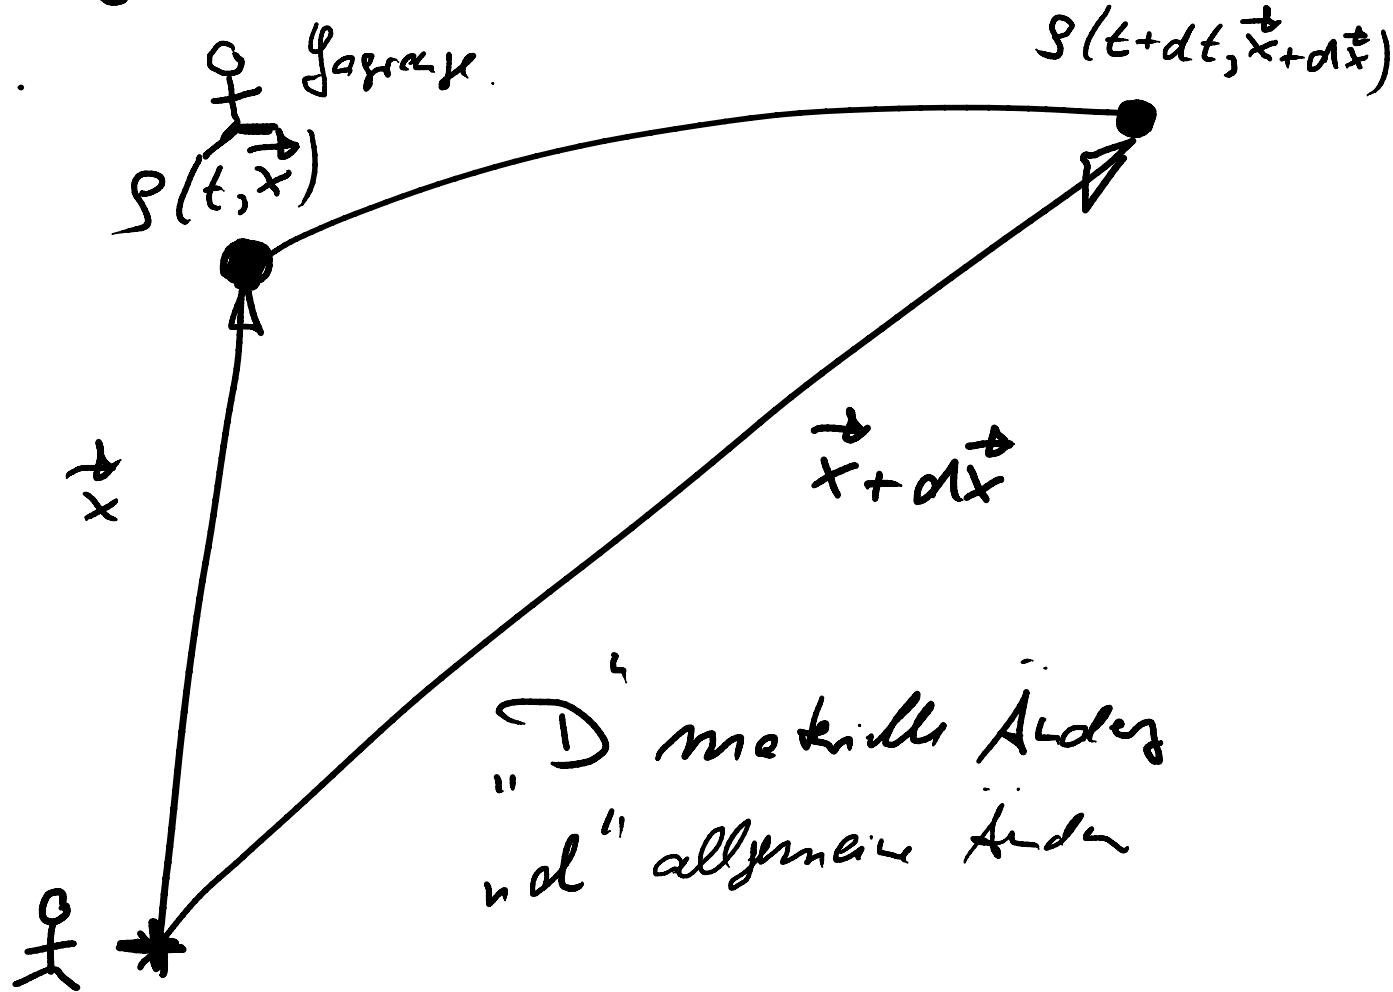 Lagrange
ρ(t+dt, x⃗+dx⃗)
ρ(t, x⃗)
x⃗
x⃗+dx⃗
„D“ materielle Änderg
„d“ allgemeine Ändern